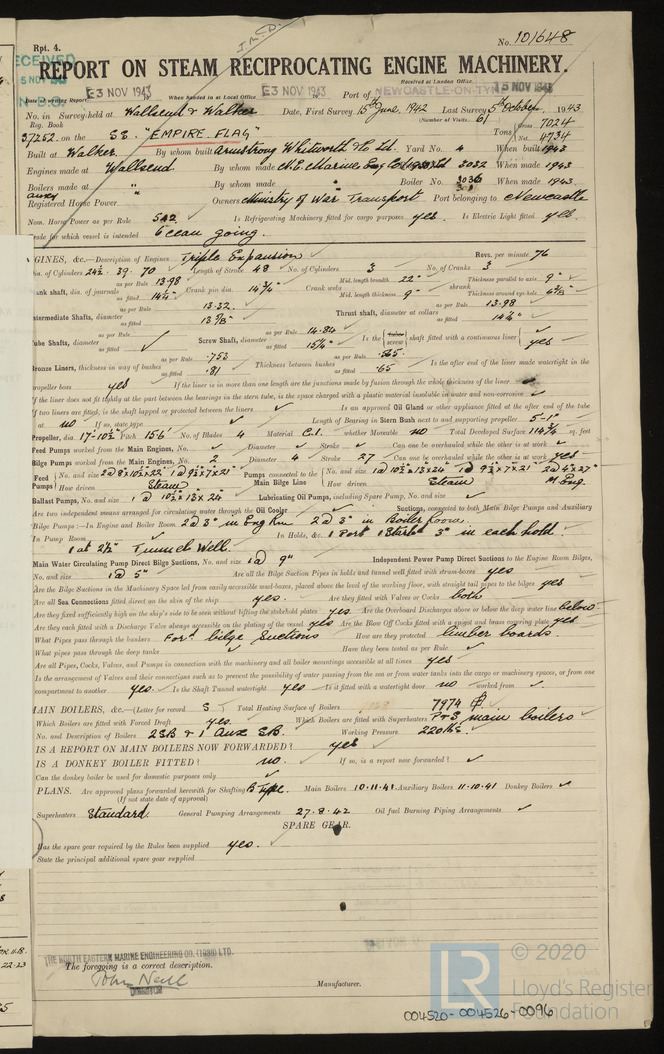 Rpt. 4.
No. 101648
RECEIVED
5 NOV 1943
REPORT ON STEAM RECIPROCATING ENGINE MACHINERY.
Received at London Office
Date of writing Report E3 NOV 1943 When handed in at Local Office E3 NOV 1943 Port of NEWCASTLE-ON-TYNE
No. in Survey held at Wallsend & Walker Date, First Survey 15th June, 1942 Last Survey 5th October 1943
Reg. Book (Number of Visits 61)
37252 on the SS. "EMPIRE FLAG" Tons Gross 7024
Net 4734
Built at Walker By whom built Armstrong Whitworth & Co Ltd. Yard No. 4 When built 1943
Engines made at Wallsend By whom made N.E. Marine Eng Co (1938) Ltd 3032 When made 1943
Boilers made at " By whom made " Boiler No. 3032 When made 1943
Registered Horse Power Owners Ministry of War Transport Port belonging to Newcastle
Nom. Horse Power as per Rule 542 Is Refrigerating Machinery fitted for cargo purposes yes. Is Electric Light fitted yes.
Trade for which vessel is intended Ocean going.
ENGINES, &c.—Description of Engines Triple Expansion Revs. per minute 76
Dia. of Cylinders 24½ . 39 . 70 Length of Stroke 48 No. of Cylinders 3 No. of Cranks 3
Crank shaft, dia. of journals as per Rule 13.98 as fitted 14¼" Crank pin dia. 14¾" Crank webs Mid. length breadth 22" Mid. length thickness 9" shrunk Thickness parallel to axis 9" Thickness around eye-hole
Intermediate Shafts, diameter as per Rule 13.32 as fitted 13⅞" Thrust shaft, diameter at collars as per Rule 13.98 as fitted 14¼"
Tube Shafts, diameter as per Rule as fitted ✓ Screw Shaft, diameter as per Rule 14.84 as fitted 15¼" Is the screw shaft fitted with a continuous liner yes
Bronze Liners, thickness in way of bushes as per Rule .753 as fitted .81 Thickness between bushes as per Rule .565 as fitted .65 Is the after end of the liner made watertight in the
propeller boss yes If the liner is in more than one length are the junctions made by fusion through the whole thickness of the liner
If the liner does not fit tightly at the part between the bearings in the stern tube, is the space charged with a plastic material insoluble in water and non-corrosive ✓
If two liners are fitted, is the shaft lapped or protected between the liners ✓ Is an approved Oil Gland or other appliance fitted at the after end of the tube
shaft no If so, state type ✓ Length of Bearing in Stern Bush next to and supporting propeller 5'-1"
Propeller, dia. 17-10½" Pitch 15'6" No. of Blades 4 Material C.I. whether Moveable NO Total Developed Surface 114 sq. feet
Feed Pumps worked from the Main Engines, No. ✓ Diameter ✓ Stroke ✓ Can one be overhauled while the other is at work ✓
Bilge Pumps worked from the Main Engines, No. 2 Diameter 4 Stroke 27 Can one be overhauled while the other is at work yes
Feed Pumps No. and size 2@8"x10½"x22" 1@9½"x7"x21" Pumps connected to the Main Bilge Line No. and size 1@10½"x13"x24" 1@9½"x7"x21" 2@4"x27"
How driven Steam How driven Steam M. Eng.
Ballast Pumps, No. and size 1@10½"x13"x24" Lubricating Oil Pumps, including Spare Pump, No. and size ✓
Are two independent means arranged for circulating water through the Oil Cooler ✓ Suctions, connected to both Main Bilge Pumps and Auxiliary
Bilge Pumps:—In Engine and Boiler Room 2@3" in Eng Rm 2@3" in Boiler Room.
In Pump Room ✓ In Holds, &c. 1 Port 1 Starbd 3" in each hold.
1 at 2½" Tunnel Well.
Main Water Circulating Pump Direct Bilge Suctions, No. and size 1@ 9" Independent Power Pump Direct Suctions to the Engine Room Bilges,
No. and size 1@5" Are all the Bilge Suction Pipes in holds and tunnel well fitted with strum-boxes yes
Are the Bilge Suctions in the Machinery Space led from easily accessible mud-boxes, placed above the level of the working floor, with straight tail pipes to the bilges yes
Are all Sea Connections fitted direct on the skin of the ship yes. Are they fitted with Valves or Cocks both
Are they fixed sufficiently high on the ship's side to be seen without lifting the stokehold plates yes. Are the Overboard Discharges above or below the deep water line below
Are they each fitted with a Discharge Valve always accessible on the plating of the vessel yes Are the Blow Off Cocks fitted with a spigot and brass covering plate yes
What Pipes pass through the bunkers Ford bilge suctions How are they protected limber boards.
What pipes pass through the deep tanks ✓ Have they been tested as per Rule ✓
Are all Pipes, Cocks, Valves, and Pumps in connection with the machinery and all boiler mountings accessible at all times yes
Is the arrangement of Valves and their connections such as to prevent the possibility of water passing from the sea or from water tanks into the cargo or machinery spaces, or from one
compartment to another yes. Is the Shaft Tunnel watertight yes Is it fitted with a watertight door no worked from ✓
MAIN BOILERS, &c.—(Letter for record S) Total Heating Surface of Boilers 7974
Which Boilers are fitted with Forced Draft yes. Which Boilers are fitted with Superheaters P&S main boilers
No. and Description of Boilers 2SB & 1 Aux SB. Working Pressure 220 lbs.
IS A REPORT ON MAIN BOILERS NOW FORWARDED? yes
IS A DONKEY BOILER FITTED? no. If so, is a report now forwarded? ✓
Can the donkey boiler be used for domestic purposes only ✓
PLANS. Are approved plans forwarded herewith for Shafting B Type. Main Boilers 10.11.41. Auxiliary Boilers 11.10.41 Donkey Boilers ✓
(If not state date of approval)
Superheaters Standard. General Pumping Arrangements 27.8.42 Oil fuel Burning Piping Arrangements ✓
SPARE GEAR.
Has the spare gear required by the Rules been supplied yes.
State the principal additional spare gear supplied
THE NORTH EASTERN MARINE ENGINEERING CO. (1938) LTD.
The foregoing is a correct description.
John Neill
DIRECTOR
Manufacturer.
LR
© 2020
Lloyd's Register
Foundation
004520-004526-0096